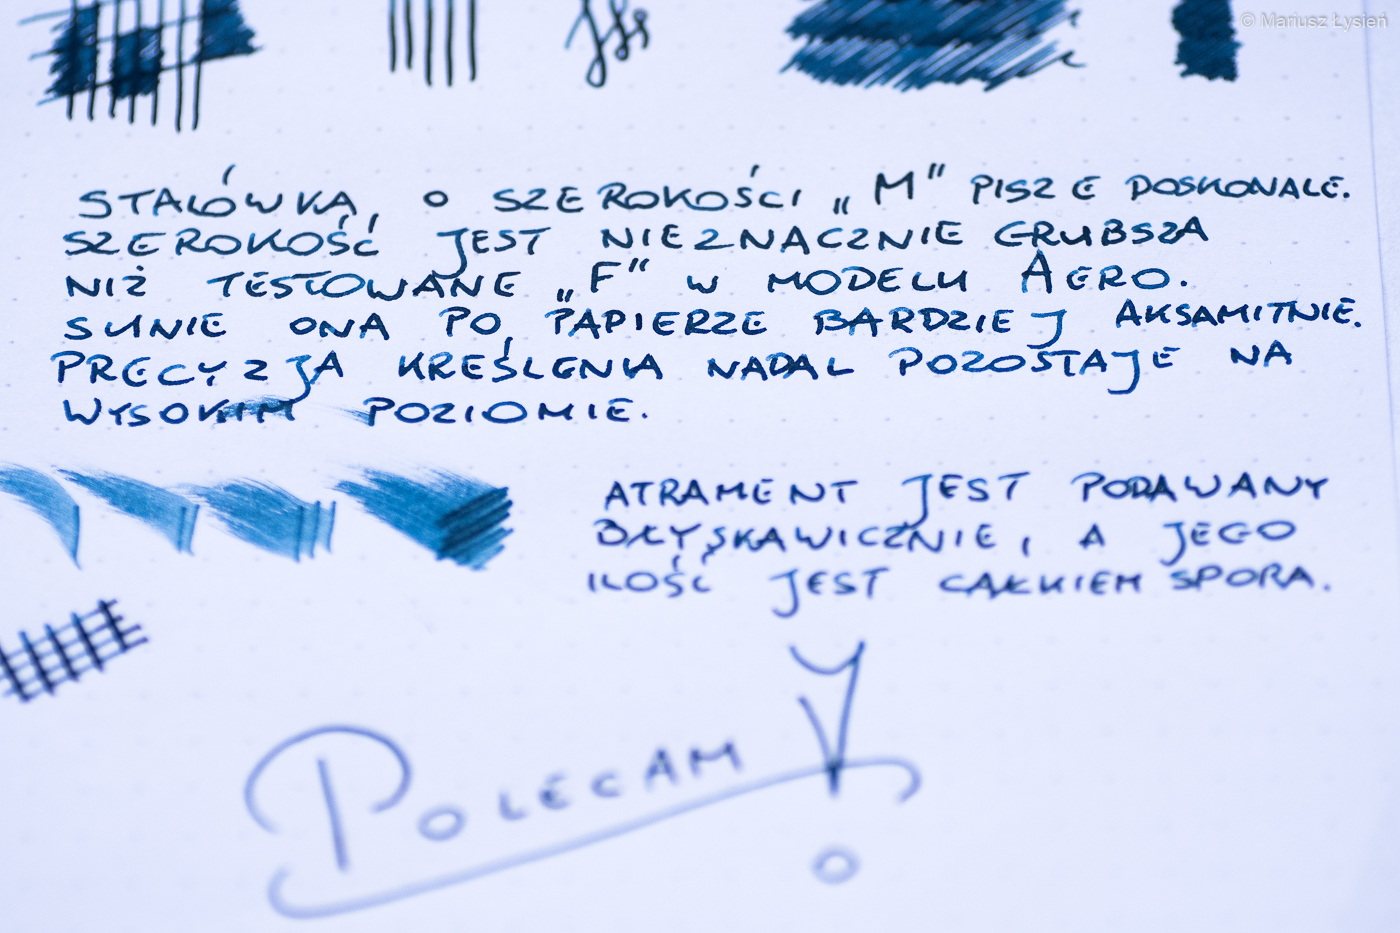 © Mariusz Łysień
STALÓWKA, O SZEROKOŚCI „M” PISZE DOSKONALE.
SZEROKOŚĆ JEST NIEZNACZNIE GRUBSZA
NIŻ TESTOWANE „F” W MODELU AERO.
SUNIE ONA PO PAPIERZE BARDZIEJ AKSAMITNIE.
PRECYZJA KREŚLENIA NADAL POZOSTAJE NA
WYSOKIM POZIOMIE.
ATRAMENT JEST PODAWANY
BŁYSKAWICZNIE, A JEGO
ILOŚĆ JEST CAŁKIEM SPORA.
POLECAM!